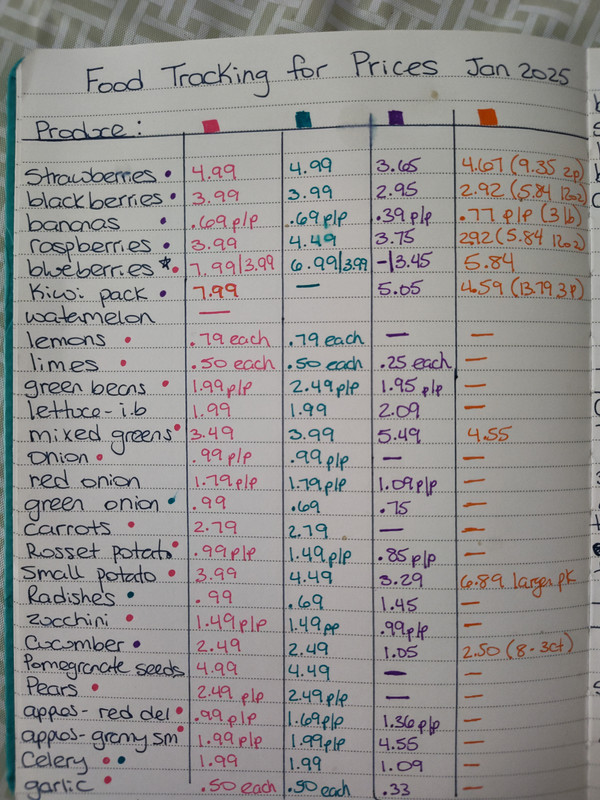 Food Tracking for Prices Jan 2025
Produce:
Strawberries 4.99 4.99 3.65 4.67 (9.35 2p)
blackberries 3.99 3.99 2.95 2.92 (5.84 12oz)
bananas .69 p/p .69 p/p .39 p/p .77 p/p (3 lb)
raspberries 3.99 4.49 3.75 2.92 (5.84 12oz)
blueberries * 7.99/3.99 6.99/3.99 -/3.45 5.84
Kiwi pack 7.99 — 5.05 4.59 (13.79 3p)
watermelon —
lemons .79 each .79 each — —
limes .50 each .50 each .25 each —
green beans 1.99 p/p 2.49 p/p 1.95 p/p —
lettuce - i.b 1.99 1.99 2.09 —
mixed greens 3.49 3.99 5.49 4.55
Onion .99 p/p .99 p/p — —
red onion 1.79 p/p 1.79 p/p 1.09 p/p —
green onion .99 .69 .75 —
Carrots 2.79 2.79 — —
Rosset potato .99 p/p 1.49 p/p .85 p/p —
Small potato 3.99 4.49 3.29 6.89 larger pk
Radishes .99 .69 1.45 —
zucchini 1.49 p/p 1.49 pp .99 p/p —
Cucomber 2.49 2.49 1.05 2.50 (8 - 3ct)
Pomegranate seeds 4.99 4.49 — —
Pears 2.49 p/p 2.49 p/p — —
appos - red del .99 p/p 1.69 p/p 1.36 p/p —
appos - granny sm 1.99 p/p 1.99 p/p 4.55 —
Celery 1.99 1.99 1.09 —
garlic .50 each .50 each .33 —